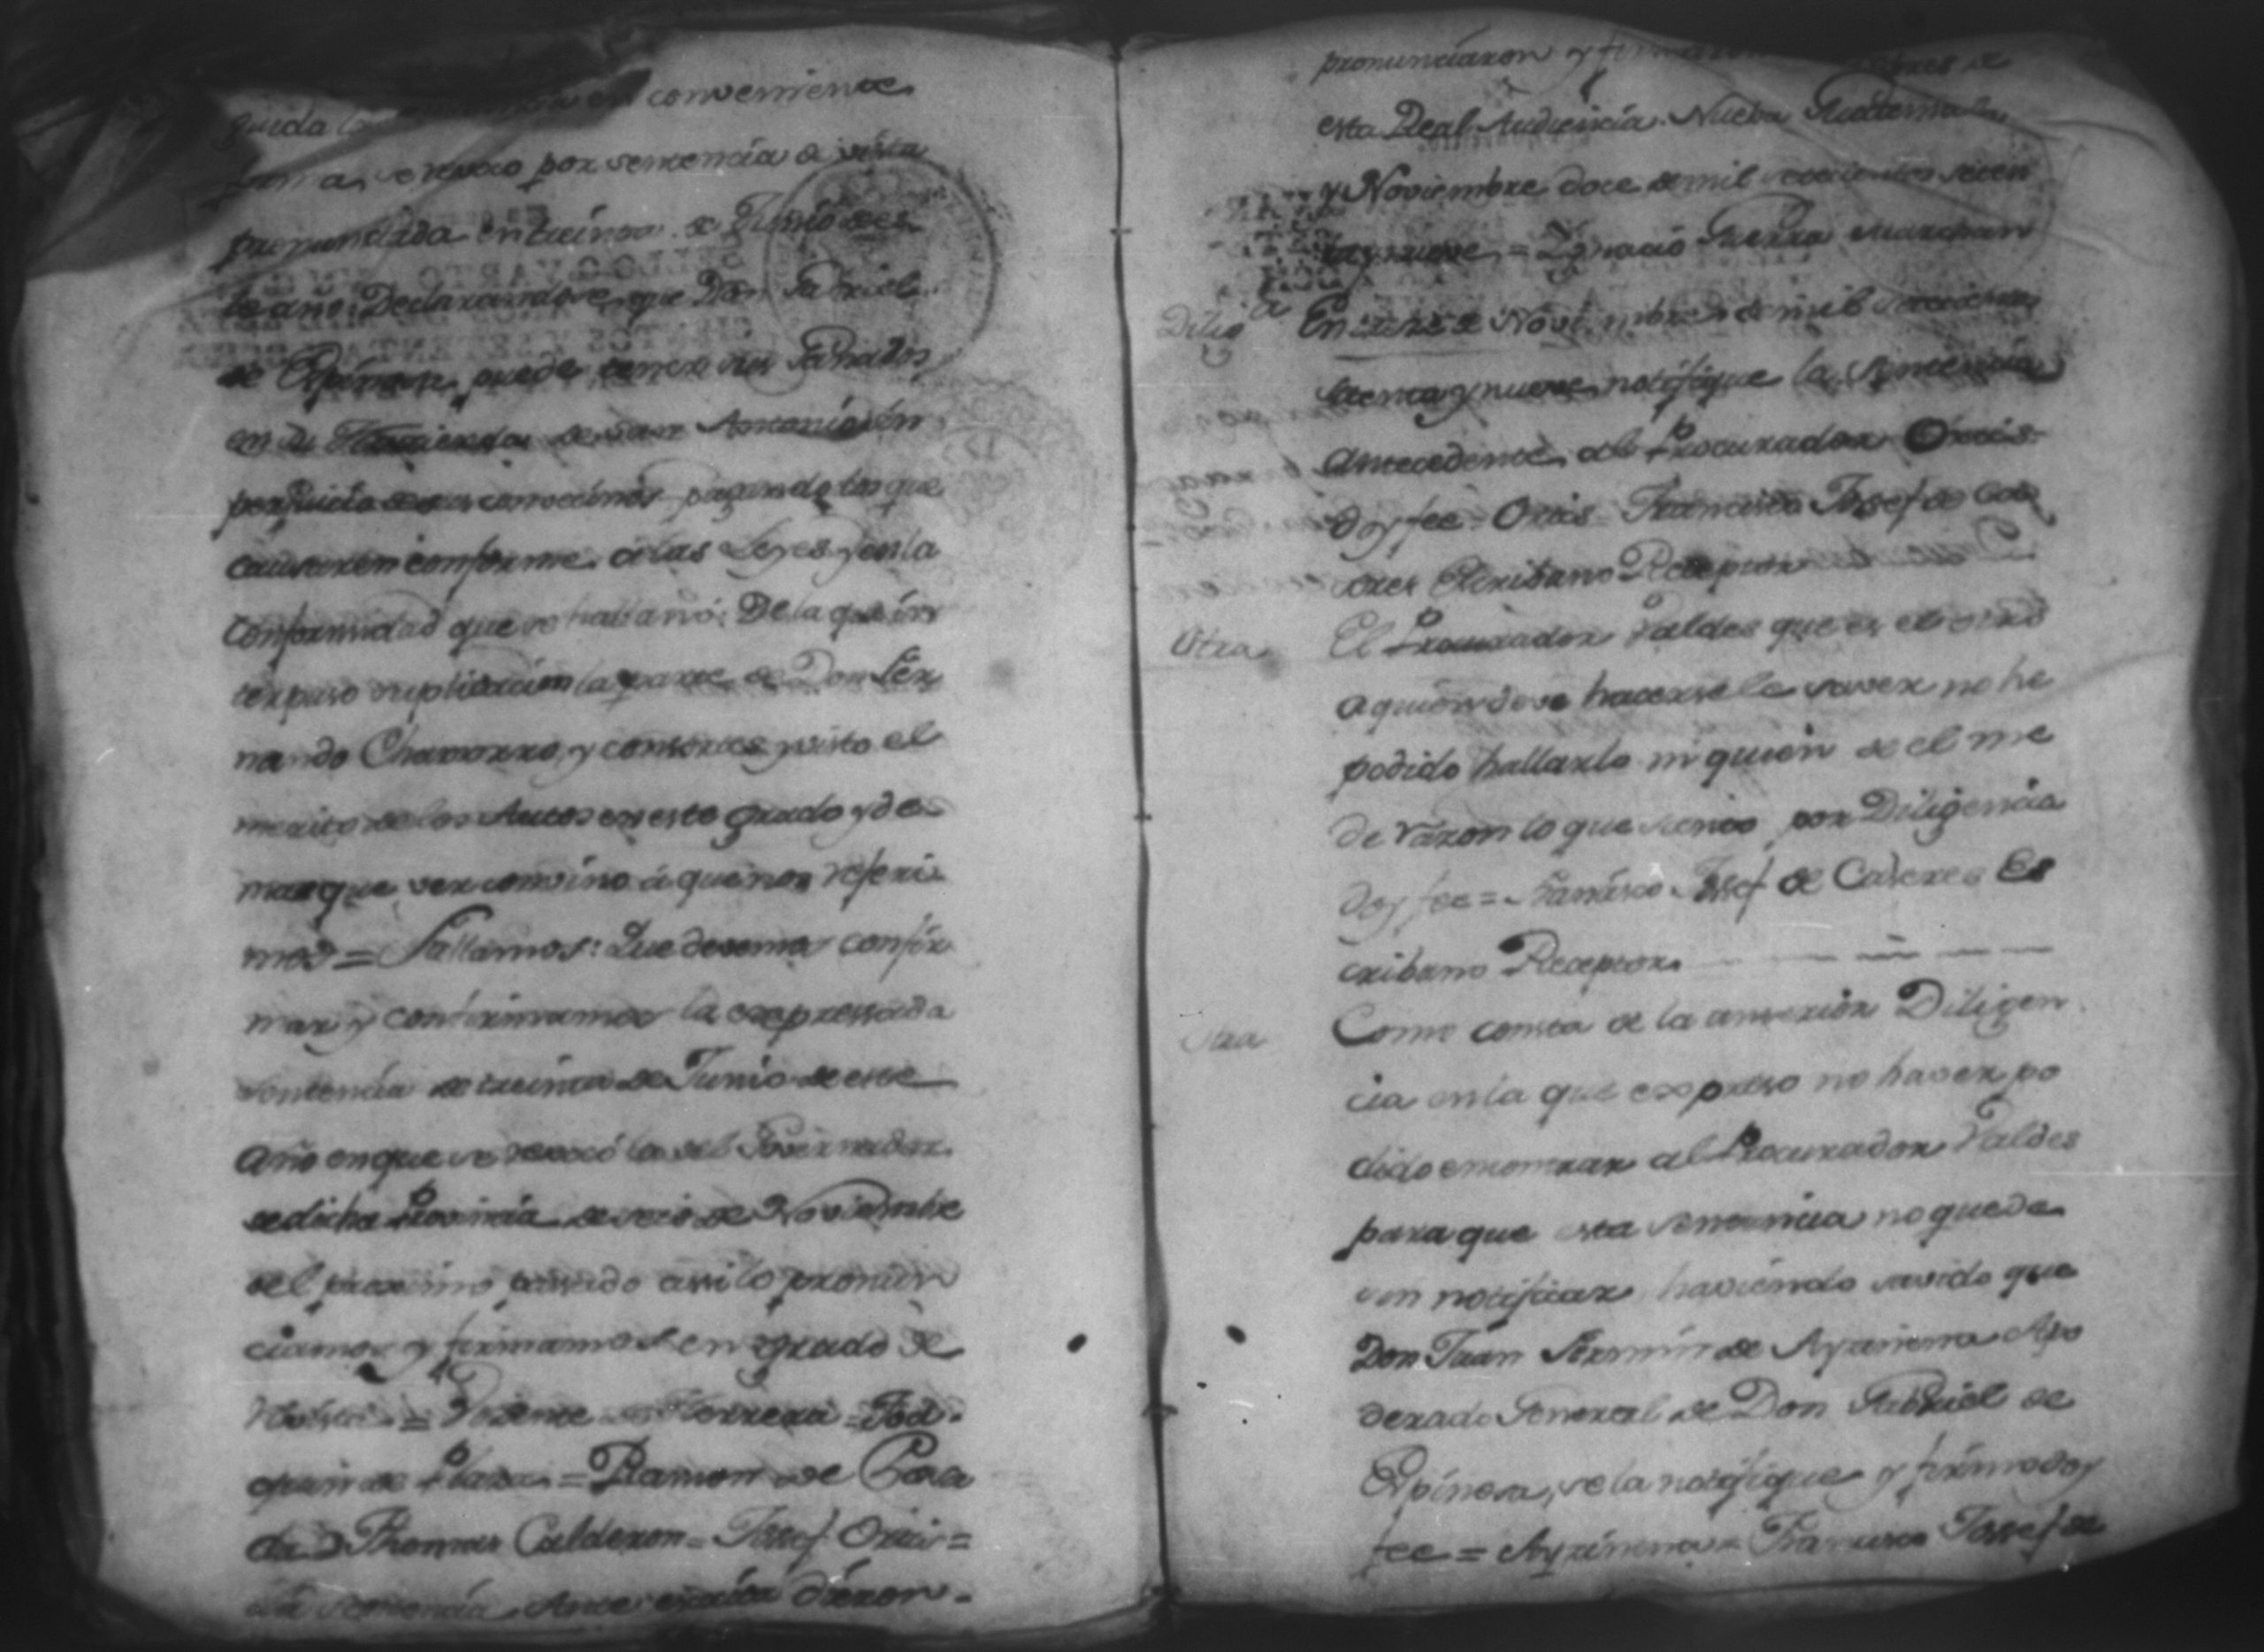 guida la en conveniente
forma, se revocó por sentencia de vista
pronunciada en treinta de Junio de es
te año. Declarandose, que Don Gabriel
de Espinosa, puede tener sus Ganados,
en su Hacienda de San Antonio sin
perjuicio de sus convecinos pagando los que
causaren conforme a las Leyes y en la
conformidad que se hallanó: De la que in
terpuso suplicacion la parte de Don Fer
nando Chamorro, y consortes, y visto el
merito de los Autos en este grado y de
mas que ver convino á que nos referi
mos = Fallamos: Que devemos confir
mar y confirmamos la expressada
sentencia de treinta de Junio de este
año en que se revocó la del Governador
de dicha Provincia de seis de Noviembre
del proximo passado assi lo pronun
ciamos y firmamos en grado de
Revista = Vicente de Herrera = Joa
quin de Plaza = Ramon de Posa
da = Thomas Calderon = Josef Ortiz =
La sentencia Ante escrita dieron
pronunciaron y firmaron de
esta Real Audiencia. Nueba Guatemala,
y Noviembre doce de mil setecientos seten
ta y nueve = Ygnacio Guerra Marchan
Dilig.a En trece de Noviembre de mil setecientos
setenta y nueve notifique la sentencia
antecedente al Procurador Ortis
doy fee = Ortis = Francisco Josef de Cab
eres Escribano Receptor
Otra El Procurador Valdes que es el otro
a quien deve hacersele saver no he
podido hallarlo ni quien de el me
de razon lo que siento por Diligencia
doy fee = Francisco Josef de Caberes Es
cribano Receptor
Otra Como consta de la anterior Diligen
cia en la que expreso no haver po
dido encontrar al Procurador Valdes
para que esta sentencia no quede
sin notificar haviendo savido que
Don Juan Fermin de Ayzinena Apo
derado General de Don Gabriel de
Espinosa, se la notifique y firmo doy
fee = Ayzinena = Francisco Josef de